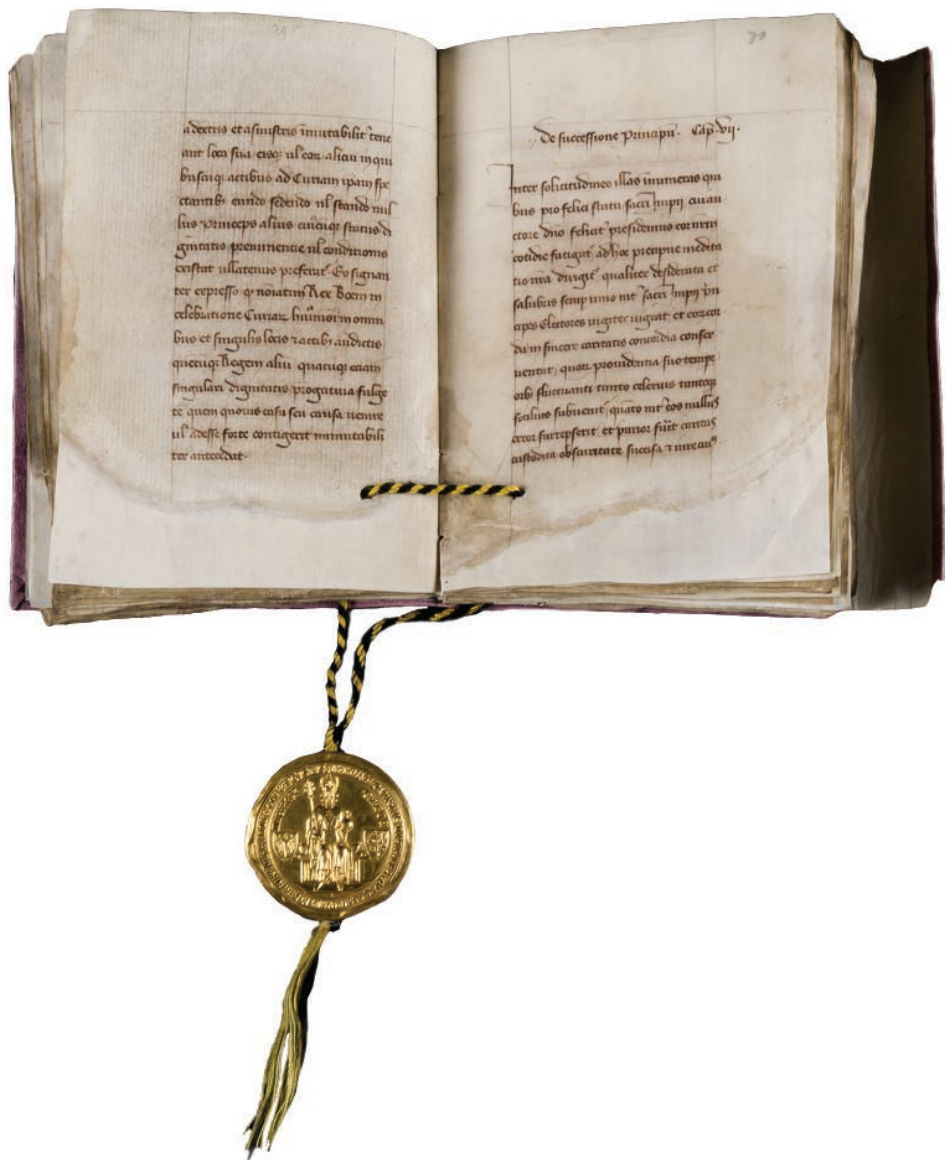 a dextris et a sinistris imutabilit tene
ant loca sua eisq; ul eor alicui in qui
buscuq; actibus ad Curiam ipam spe
ctantibus eundo sedendo ul stando nul
lus princeps alius cuiuscuq; status di
gnitatis preminencie ul conditionis
existat ullatenus preferat. Eo signan
ter expresso q nominatim Rex Boem in
celebratione Curiar huiusmoi in omni
bus et singulis locis et actibus antedictis
quecuq; Regem aliu quacuq; eciam
singulari dignitatis progatiua fulge
te quem quouis casu seu causa uenire
ul adesse forte contigerit immutabili
ter antecedat.
80
De successione Principu. Cap. vij.
Inter solicitudines illas innumeras qui
bus pro felici statu sacri Impij cui au
ctore dno felicit presidemus cor nrm
cotidie fatigat ad hoc precipue medita
tio nra dirigit qualiter desiderata et
salubris semp unio int sacri Impij prin
cipes Electores iugiter uigeat et concor
da in sincere caritatis concordia conser
uentur, quor prouidentia suo tempe
orbi fluctuanti tanto celerius tantoq;
facilius subuenit, quato int eos nullus
error surrepserit et purior fuit caritas
custodita obscuritate succisa et iure cuius